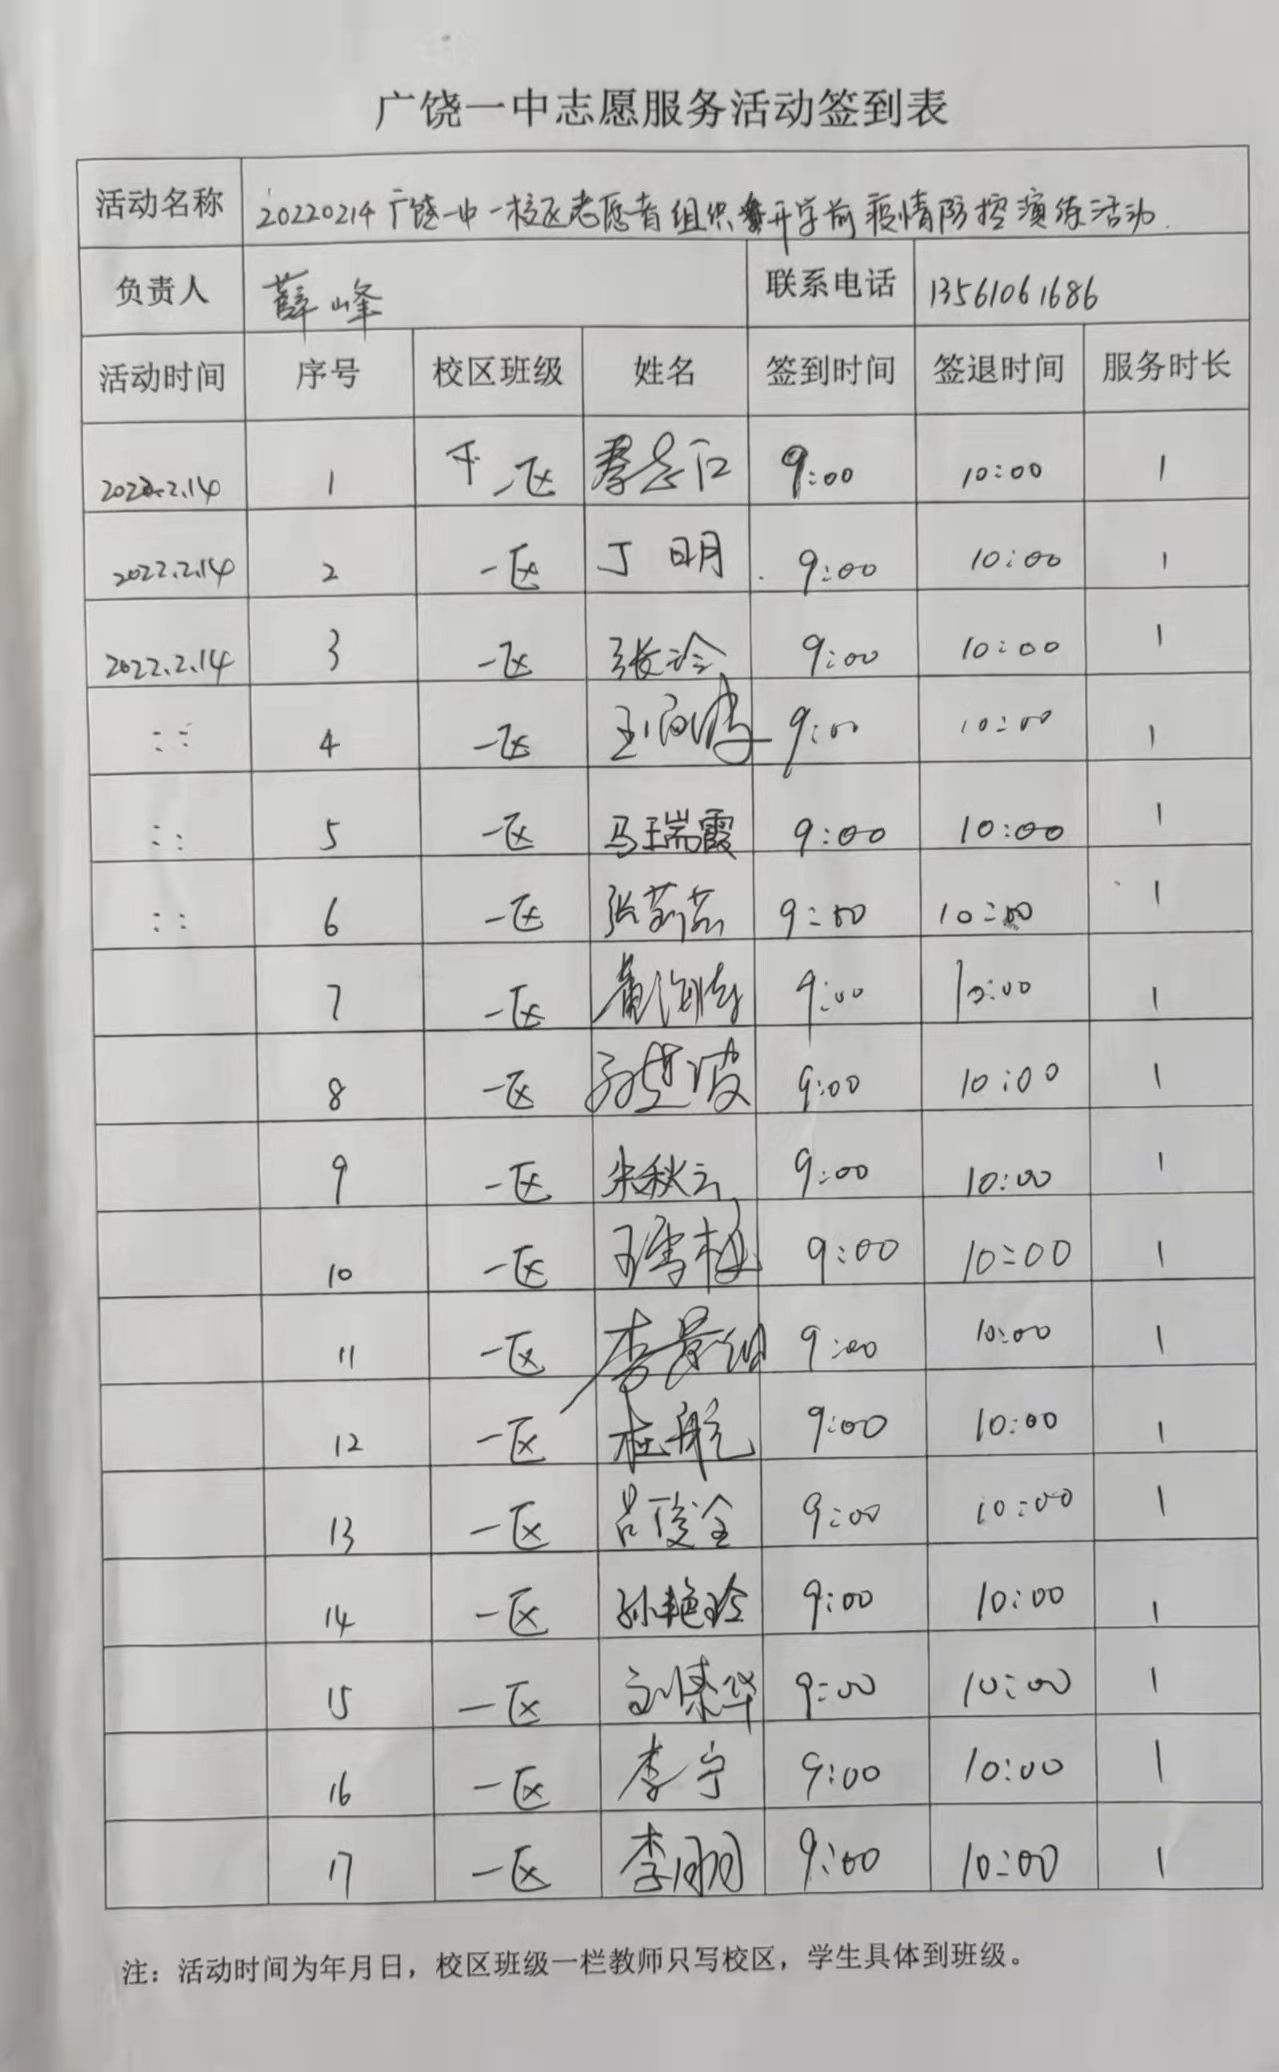 广饶一中志愿服务活动签到表
活动名称 20220214广饶一中一校区志愿者组织开学前疫情防控演练活动.
负责人 薛峰 联系电话 13561061686
活动时间 序号 校区班级 姓名 签到时间 签退时间 服务时长
2022.2.14 1 一区 9:00 10:00 1
2022.2.14 2 一区 丁明 9:00 10:00 1
2022.2.14 3 一区 张玲 9:00 10:00 1
:: 4 一区 9:00 10:00 1
:: 5 一区 马瑞霞 9:00 10:00 1
:: 6 一区 张莉茹 9:00 10:00 1
7 一区 9:00 10:00 1
8 一区 孙楚波 9:00 10:00 1
9 一区 朱秋云 9:00 10:00 1
10 一区 王雪梅 9:00 10:00 1
11 一区 李景 9:00 10:00 1
12 一区 杜航 9:00 10:00 1
13 一区 吕俊全 9:00 10:00 1
14 一区 孙艳玲 9:00 10:00 1
15 一区 刘荣华 9:00 10:00 1
16 一区 李宁 9:00 10:00 1
17 一区 李朋 9:00 10:00 1
注：活动时间为年月日，校区班级一栏教师只写校区，学生具体到班级。